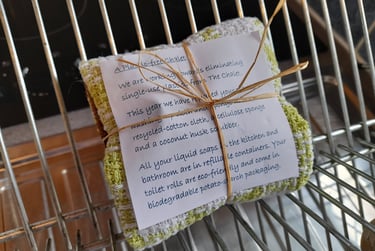 A Plastic-free Chalet
We are working towards eliminating
single-use plastics in The Chalet.
This year we have
recycled-cotton cloth, cellulose sponge
and a coconut husk scrubber.
All your liquid soaps in the kitchen and
bathroom are in refillable containers. Your
toilet rolls are eco-friendly and come in
biodegradable potato-starch packaging.